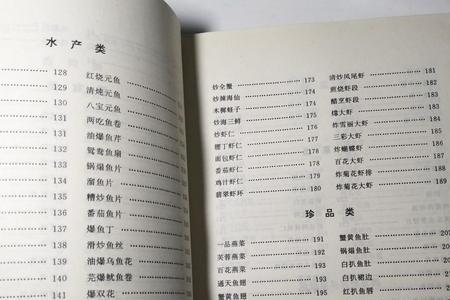 水产类
128
129
131
131
132
134
134
135
136
136
137
138
139
140
141
红烧元鱼
清炖元鱼
八宝元鱼
两吃鱼卷
油爆鱼芹
鸳鸯鱼扇
锅爆鱼片
溜鱼片
糟炒鱼片
番茄鱼片
爆鱼丁
滑炒鱼丝
油爆乌鱼花
芫爆鱿鱼卷
爆双花
炒全蟹 173
炒辣海仙 174
木樨蛏子 174
炒海三鲜 175
炒虾仁 175
腰丁虾仁 176
面包虾仁 177
番茄虾仁 178
鸡汁虾仁 179
翡翠虾环 180
清炒凤尾虾 181
煎烧虾段 181
醋烹虾段 182
大虾 183
炸雪丽大虾 184
三彩大虾 185
炸蝴蝶虾 186
百花大虾 187
炸菊花虾排 188
炸菊花大虾 189
珍品类
一品燕菜 191
芙蓉燕菜 192
百花燕菜 193
通天鱼翅 195
蟹黄鱼翅 195
蟹黄鱼肚 207
锅爆鱼肚
白扒鱼肚
白扒裙边
红扒鱼唇